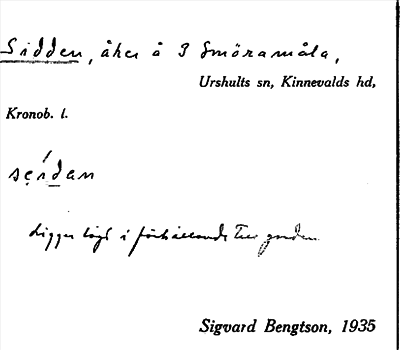 Sidden, åker å 3 Smöramåla,
Urshults sn, Kinnevalds hd,
Kronob. l.
ligger lågt i förhållande till gården
Sigvard Bengtson, 1935